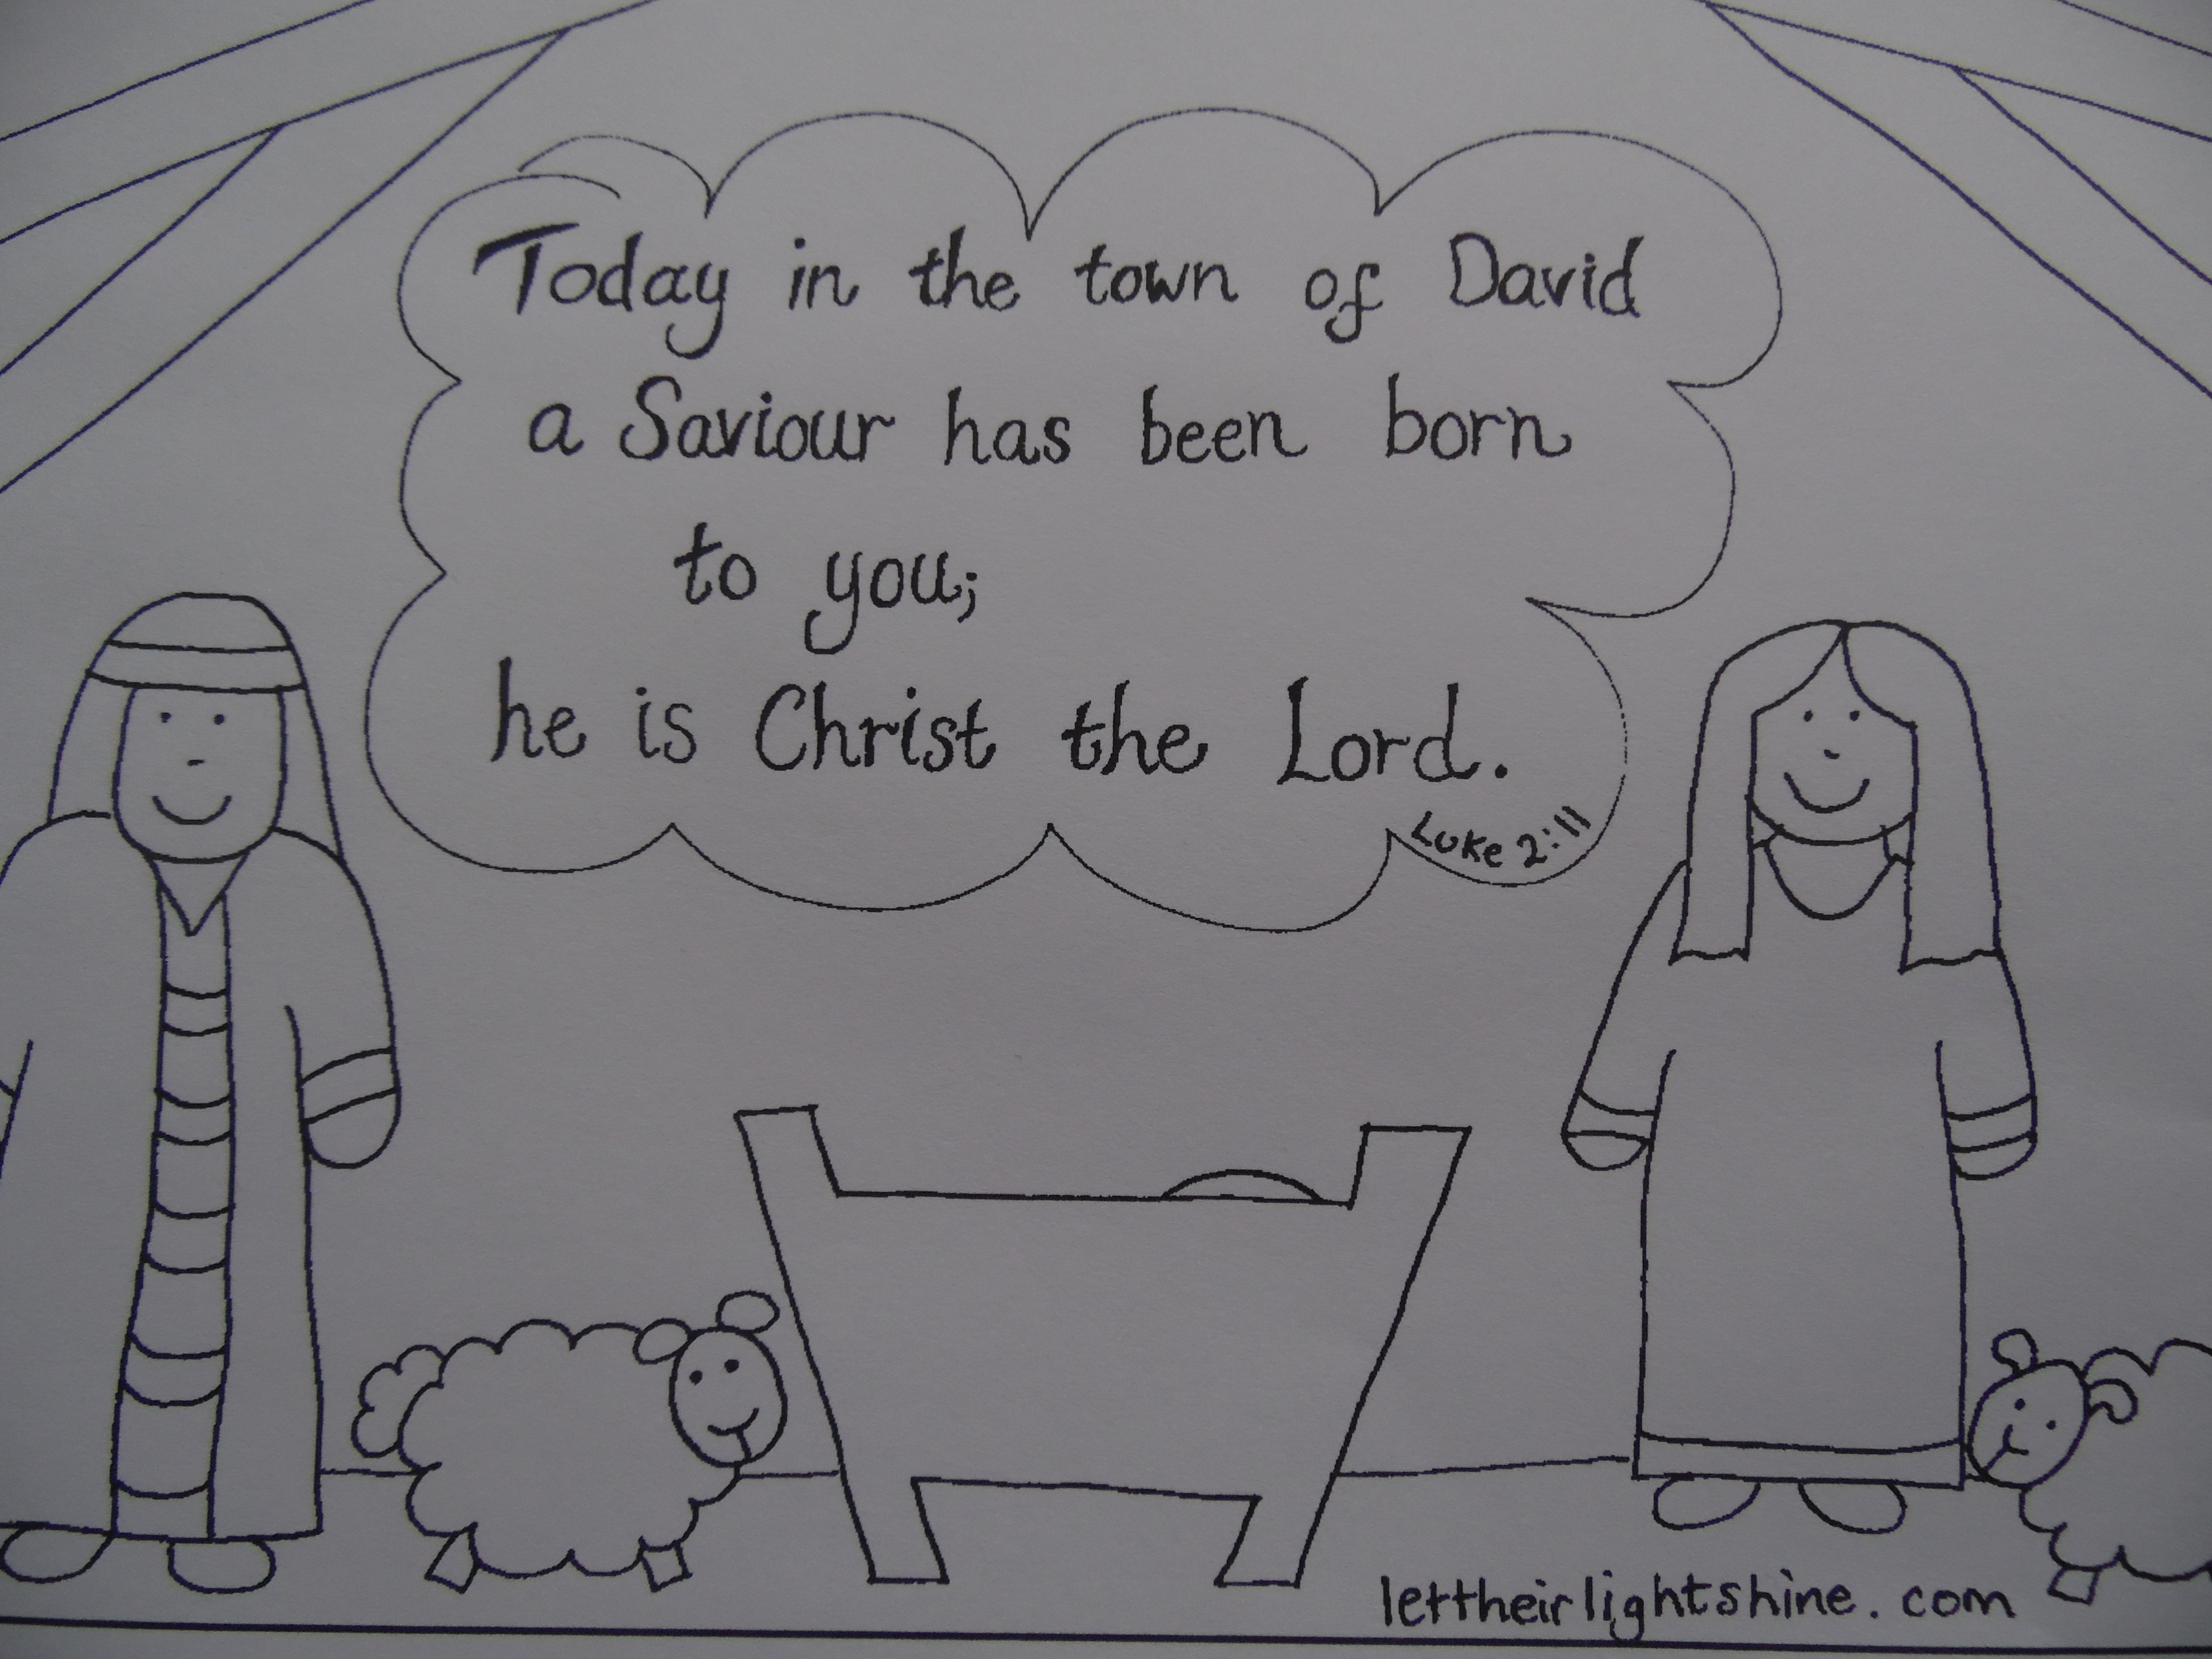 Today in the town of David
a Saviour has been born
to you;
he is Christ the Lord.
Luke 2:11
lettheirlightshine.com